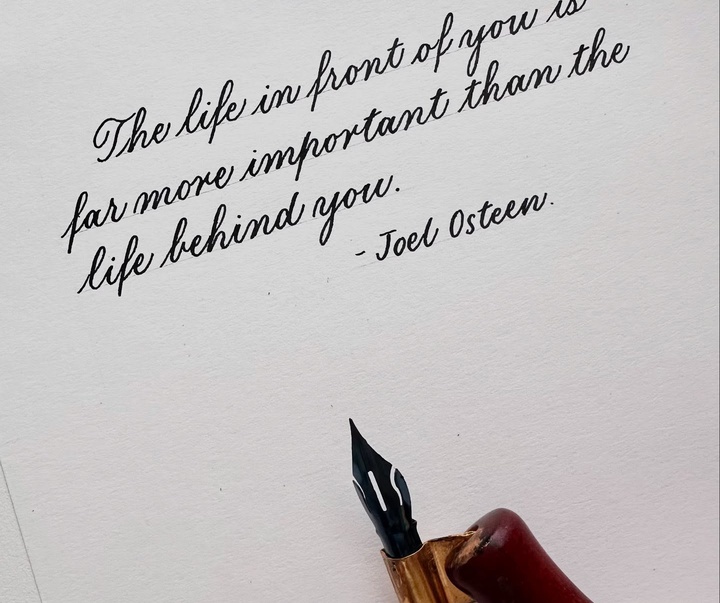 The life in front of you is
far more important than the
life behind you.
- Joel Osteen.